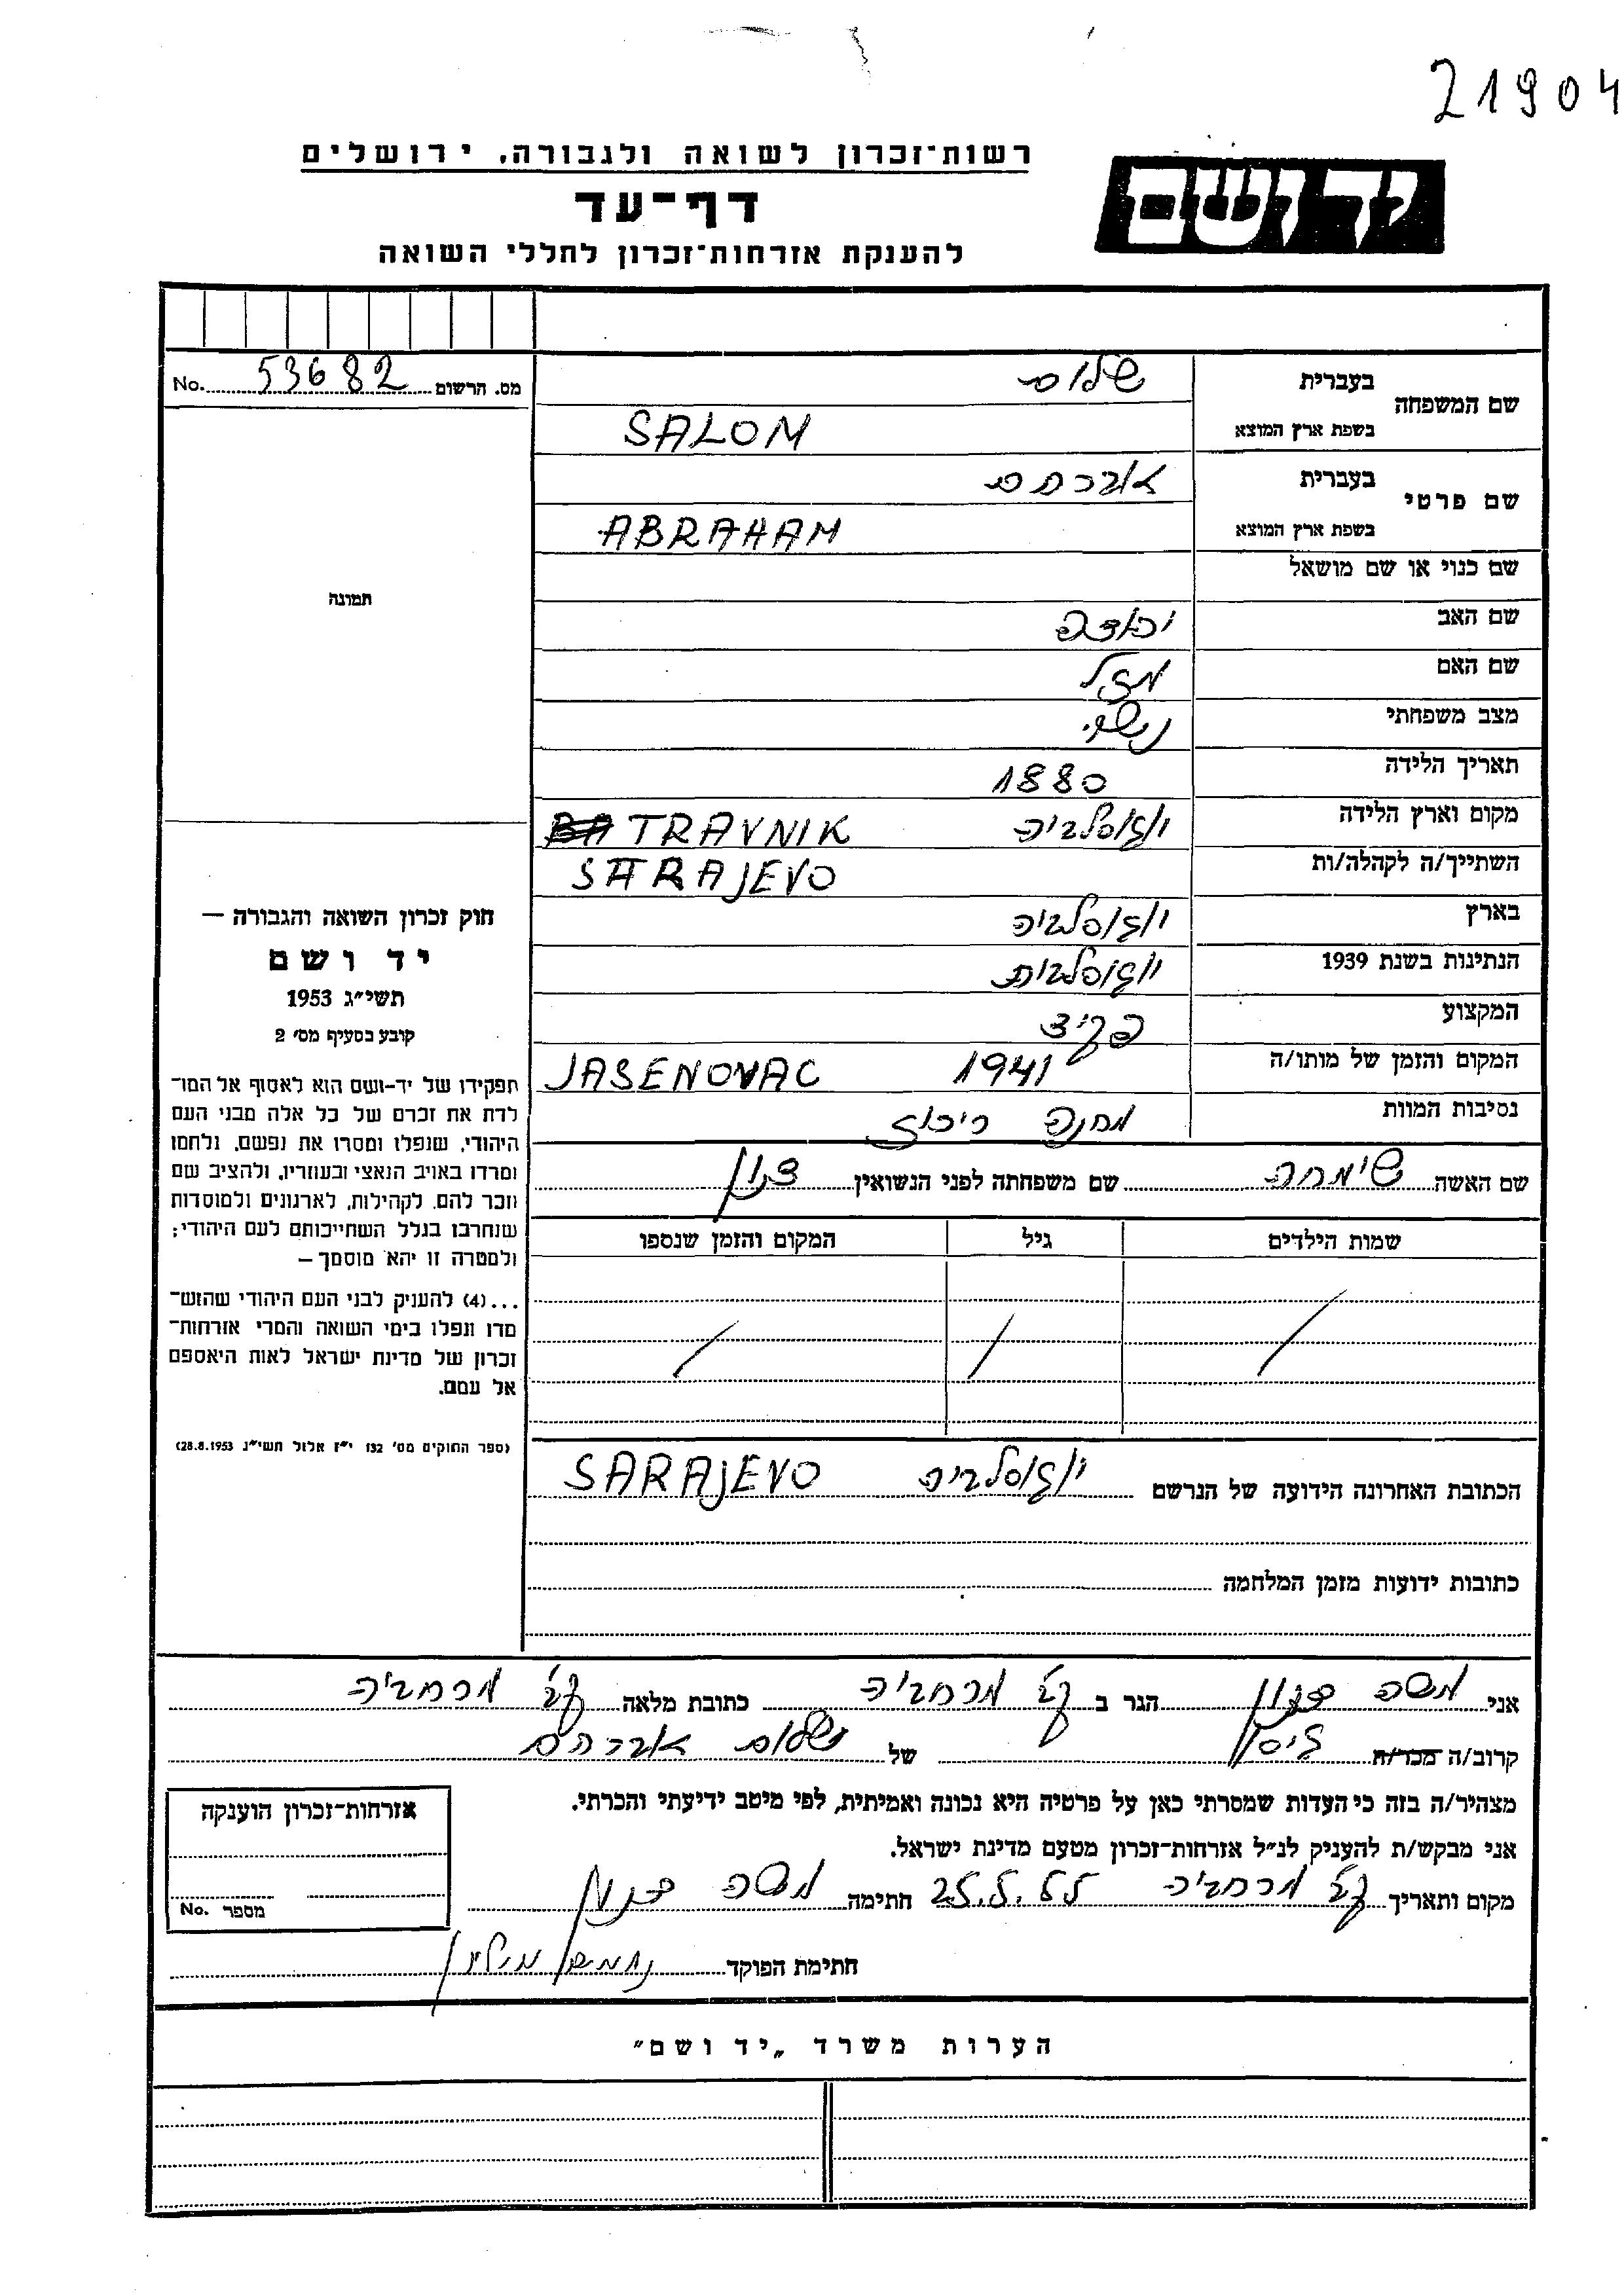 21904
רשות-זכרון לשואה ולגבורה, ירושלים
יד ושם
דף-עד
להענקת אזרחות-זכרון לחללי השואה
מס. הרשום 53682 No.
שם המשפחה בעברית שלום
בשפת ארץ המוצא SALOM
שם פרטי בעברית אברהם
בשפת ארץ המוצא ABRAHAM
שם כנוי או שם מושאל
שם האב יהודה
שם האם מזל
מצב משפחתי נשוי
תאריך הלידה 1880
מקום וארץ הלידה יוגוסלביה TRAVNIK
השתייך/ה לקהלה/ות SARAJEVO
בארץ יוגוסלביה
הנתינות בשנת 1939 יוגוסלבית
המקצוע פקיד
המקום והזמן של מותו/ה 1941 JASENOVAC
נסיבות המוות מחנה ריכוז
שם האשה שימחה שם משפחתה לפני הנשואין דנון
שמות הילדים גיל המקום והזמן שנספו
הכתובת האחרונה הידועה של הנרשם יוגוסלביה SARAJEVO
כתובות ידועות מזמן המלחמה
תמונה
חוק זכרון השואה והגבורה —
יד ושם
תשי"ג 1953
קובע בסעיף מס' 2
תפקידו של יד-ושם הוא לאסוף אל המו-
לדת את זכרם של כל אלה מבני העם
היהודי, שנפלו ומסרו את נפשם, נלחמו
ומרדו באויב הנאצי ובעוזריו, ולהציב שם
וזכר להם, לקהילות, לארגונים ולמוסדות
שנחרבו בגלל השתייכותם לעם היהודי;
ולמטרה זו יהא מוסמך —
...(4) להעניק לבני העם היהודי שהוש-
מדו ונפלו בימי השואה והמרי אזרחות-
זכרון של מדינת ישראל לאות היאספם
אל עמם.
(ספר החוקים מס' 132 י"ז אלול תשי"ג 28.8.1953)
אני משה דנון הגר ב קב' מרחביה כתובת מלאה קב' מרחביה
קרוב/ה מכר/ה גיסן של שלום אברהם
מצהיר/ה בזה כי העדות שמסרתי כאן על פרטיה היא נכונה ואמיתית, לפי מיטב ידיעתי והכרתי.
אני מבקש/ת להעניק לנ"ל אזרחות-זכרון מטעם מדינת ישראל.
מקום ותאריך קב' מרחביה חתימה משה דנון
חתימת הפוקד
אזרחות-זכרון הוענקה
מספר No.
הערות משרד „יד ושם"